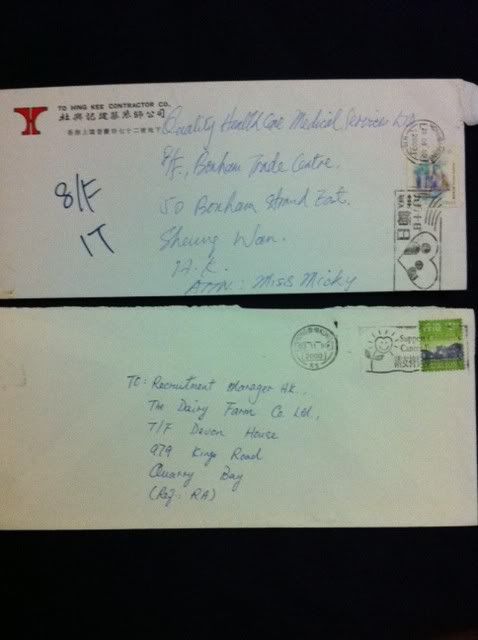 TO HING KEE CONTRACTOR CO.,
杜興記建築漆師公司
香港上環普慶坊七十二號地下
Quality HealthCare Medical Services LTD
8/F., Bonham Trade Centre.
50 Bonham Strand East.
Sheung Wan.
H.K.
ATTN.: Miss Micky
8/F
IT
2000
Support
Cancer
TO: Recruitment Manager HK.,
The Dairy Farm Co. Ltd.,
7/F Devon House
979 Kings Road
Quarry Bay
(Ref: RA)